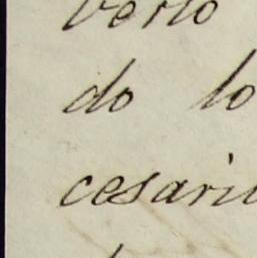 verlo
do lo
cesari